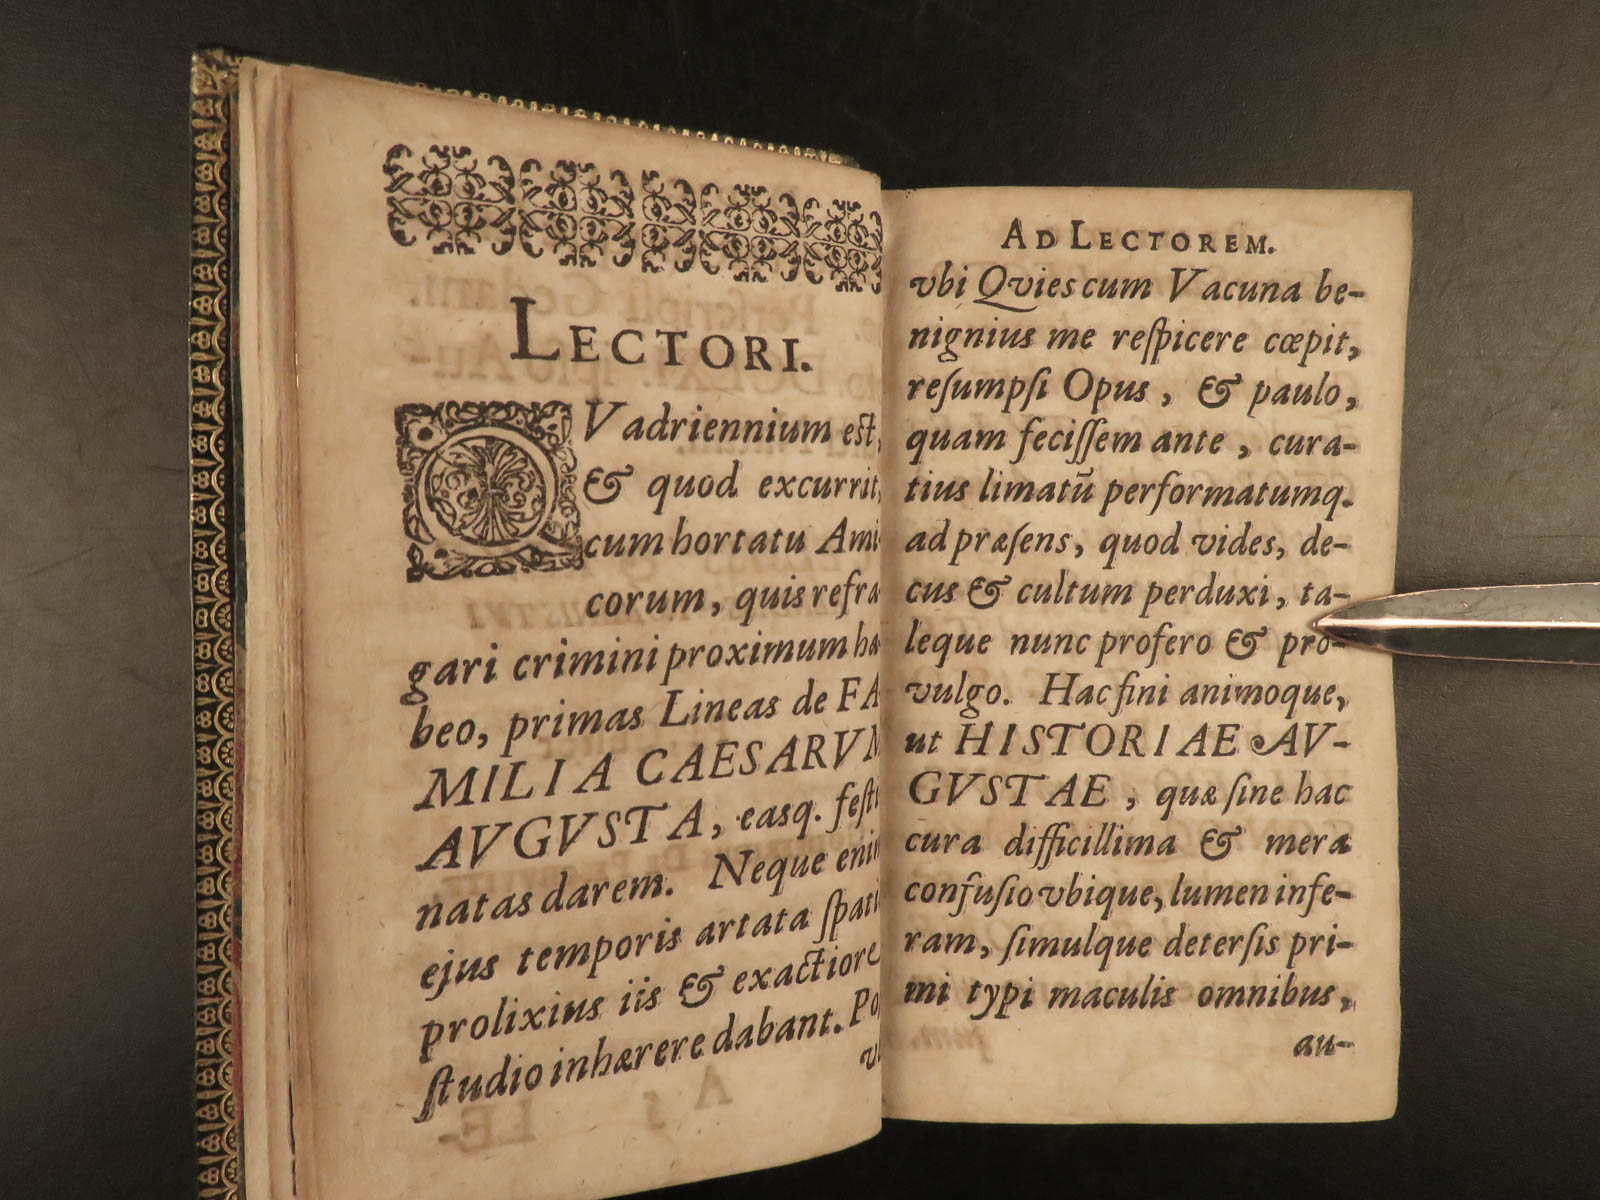 LECTORI.
QVadriennium est,
& quod excurrit,
cum hortatu Ami
corum, quis refra
gari crimini proximum ha
beo, primas Lineas de FA
MILIA CAESARVM
AVGVSTA, easq. festi
natas darem. Neque enim
ejus temporis artata ſpati
prolixius iis & exactiore
ſtudio inhærere dabant. Po
v
AD LECTOREM.
vbi Qvies cum Vacuna be-
nignius me reſpicere cœpit,
reſumpſi Opus, & paulo,
quam feciſſem ante, cura-
tius limatū performatumq.
ad præſens, quod vides, de-
cus & cultum perduxi, ta-
leque nunc profero & pro-
vulgo. Hac fini animoque,
ut HISTORIAE AV-
GVSTAE, quæ ſine hac
cura difficillima & mera
confuſio vbique, lumen infe-
ram, ſimulque deterſis pri-
mi typi maculis omnibus,
au-